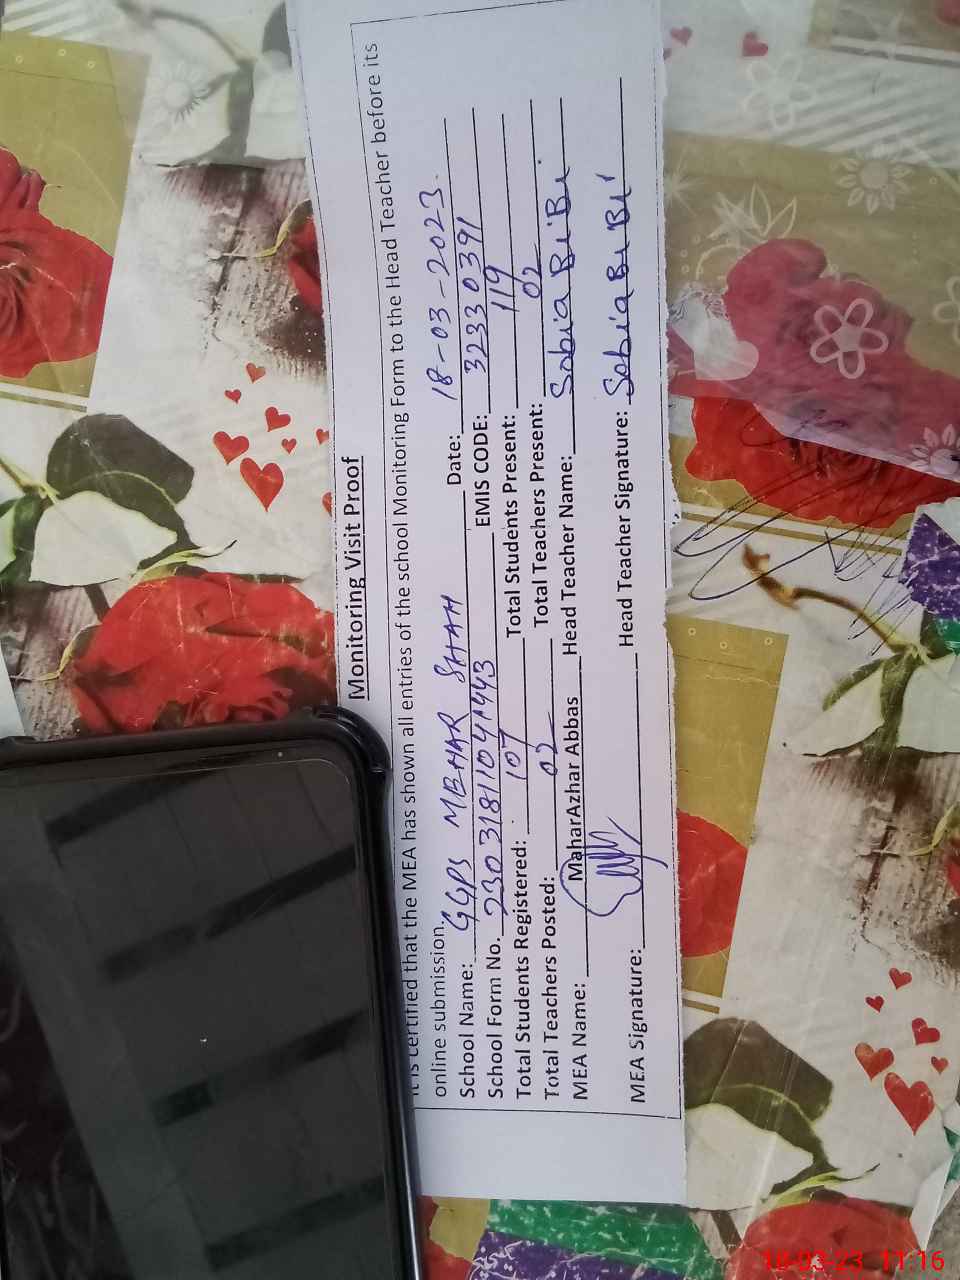 Monitoring Visit Proof
It is certified that the MEA has shown all entries of the school Monitoring Form to the Head Teacher before its
online submission.
School Name: GGPS MEHAR SHAH Date: 18-03-2023.
School Form No. 23031811041443 EMIS CODE: 32330391
Total Students Registered: 107 Total Students Present: 119
Total Teachers Posted: 02 Total Teachers Present: 02
MEA Name: MaharAzhar Abbas Head Teacher Name: Sobia BiBi
MEA Signature: Head Teacher Signature: Sobia BiBi
18-03-23 11:16